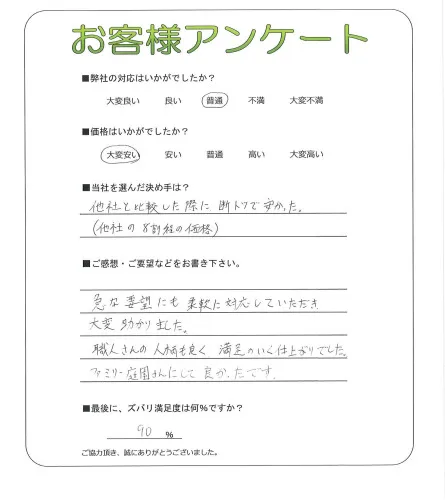 お客様アンケート
■弊社の対応はいかがでしたか？
大変良い 良い 普通 不満 大変不満
■価格はいかがでしたか？
大変安い 安い 普通 高い 大変高い
■当社を選んだ決め手は？
他社と比較した際に断トツで安かった。
(他社の8割程の価格)
■ご感想・ご要望などをお書き下さい。
急な要望にも柔軟に対応していただき
大変助かりました。
職人さんの人柄も良く満足のいく仕上がりでした。
ファミリー庭園さんにして良かったです。
■最後に、ズバリ満足度は何％ですか？
90 ％
ご協力頂き、誠にありがとうございました。